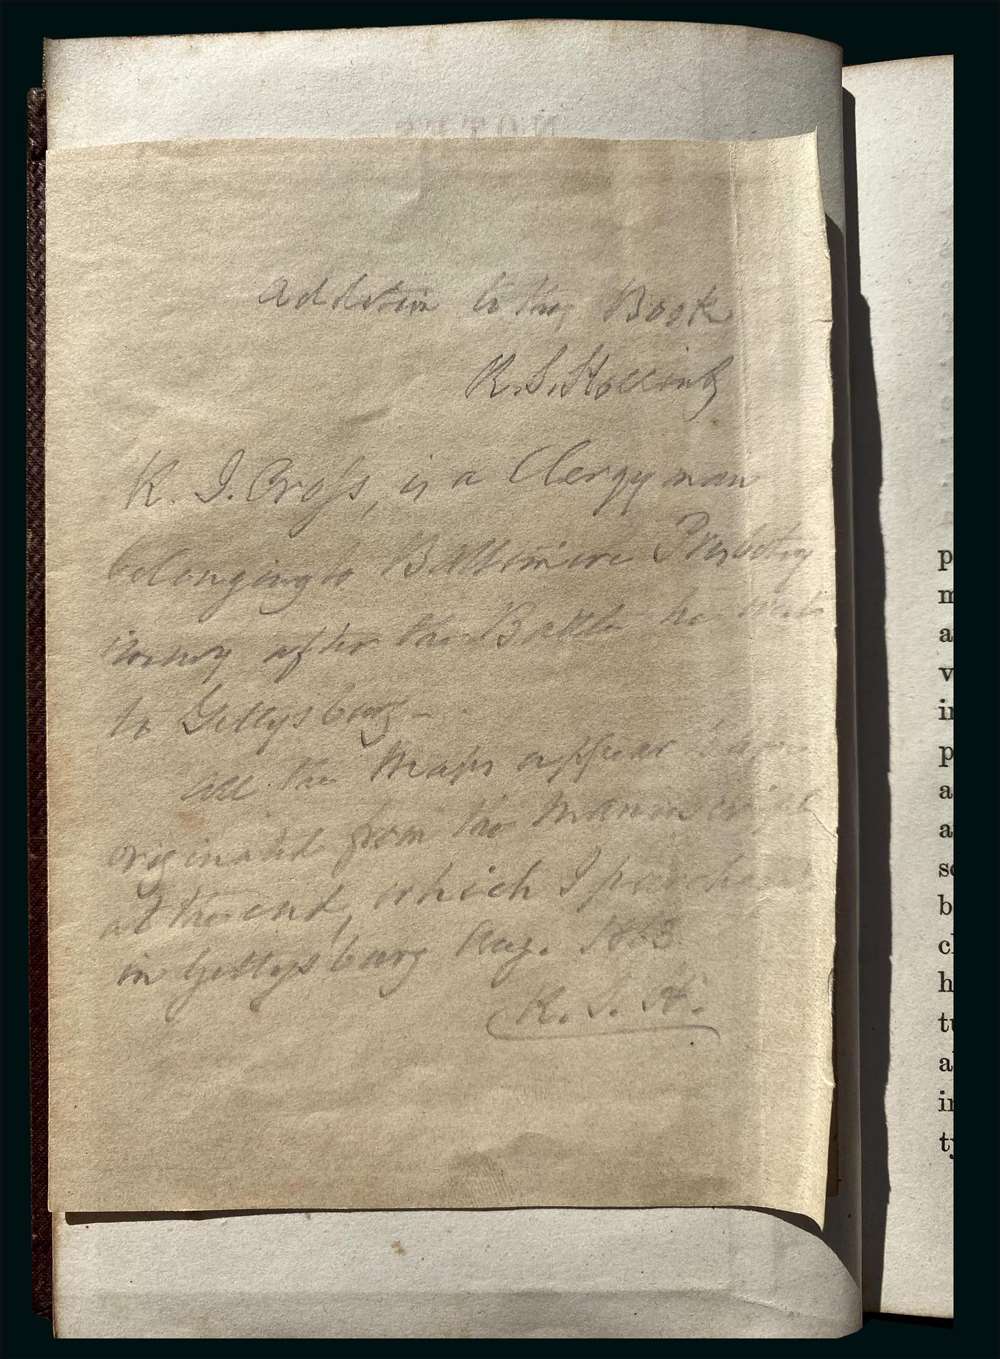 NOTES
Addition to this Book
R. S. Hollins
K. J. Cross, is a Clergyman
belonging to Baltimore Presbetry
after the Battle he went
to Gettysburg –
all the Maps appear
originated from the Manuscript
at the end, which I purchased
in Gettysburg Aug. 1863
R. S. H.
p
m
a
v
in
p
a
a
se
b
cl
h
tu
a
in
ty